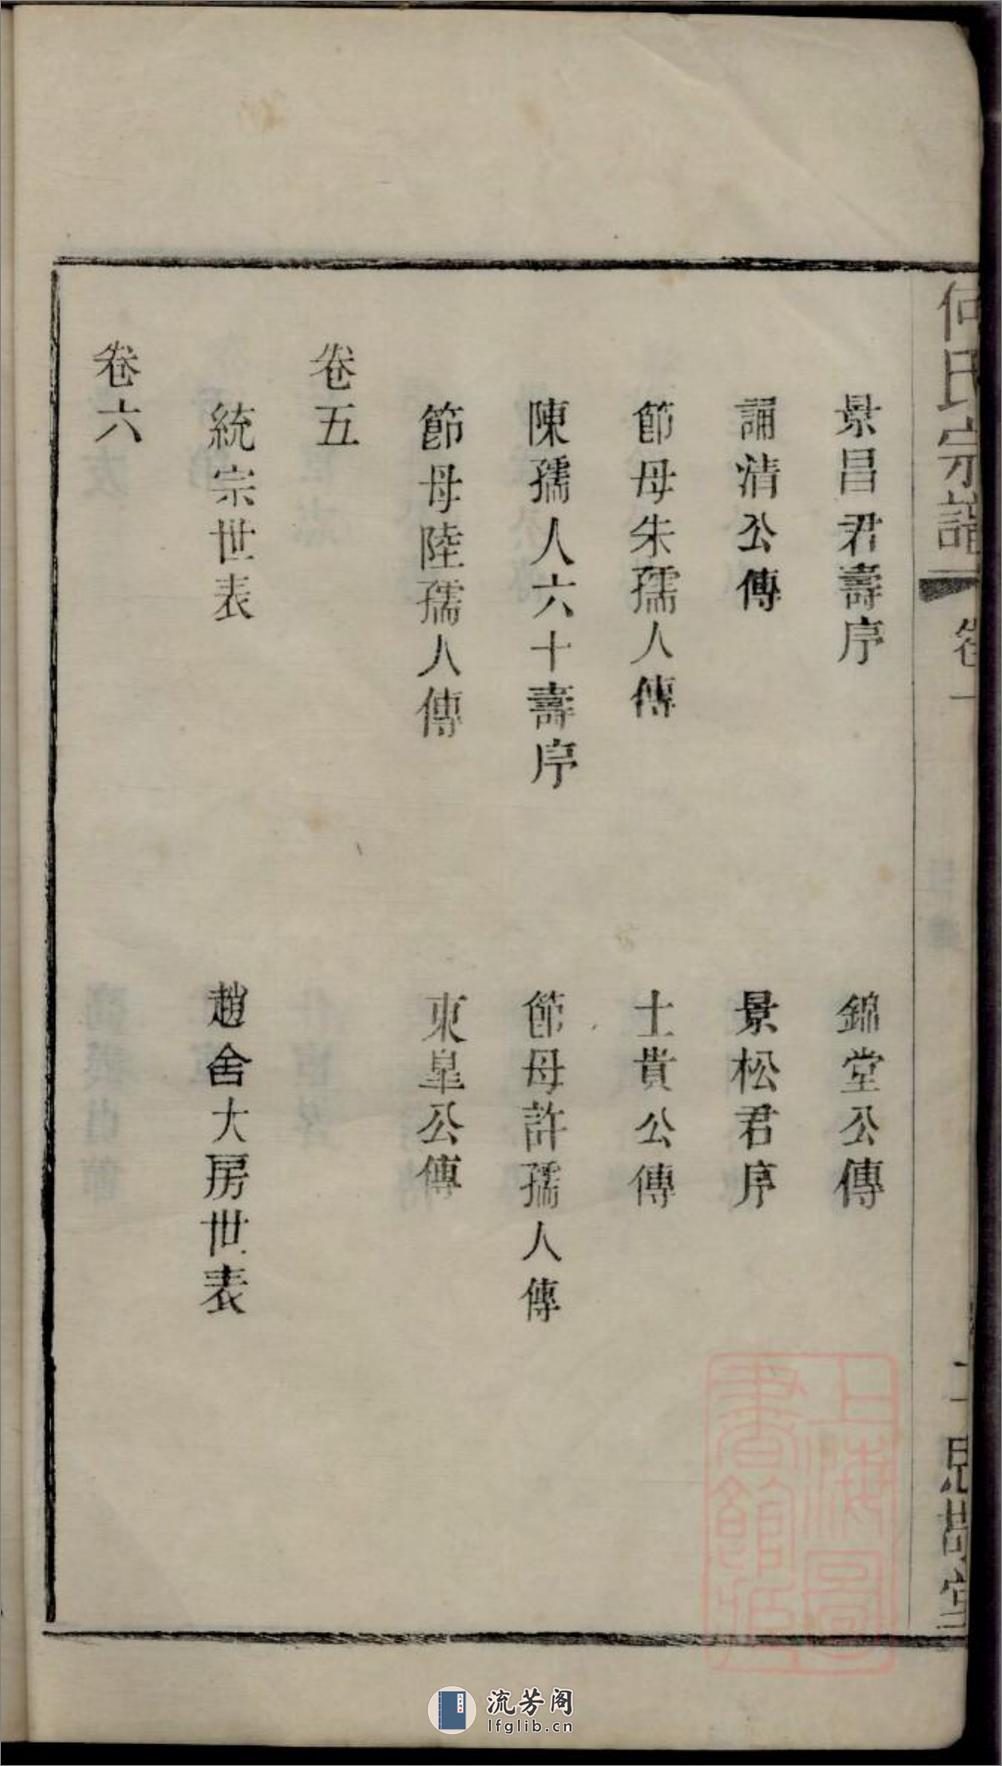 何氏宗譜
卷一
二
思敬堂
景昌君壽序
錦堂公傳
誦清公傳
景松君序
節母朱孺人傳
士貴公傳
陳孺人六十壽序
節母許孺人傳
節母陸孺人傳
東皐公傳
卷五
統宗世表
趙舍大房世表
卷六
上海圖
書館藏
流芳阁
lfglib.cn